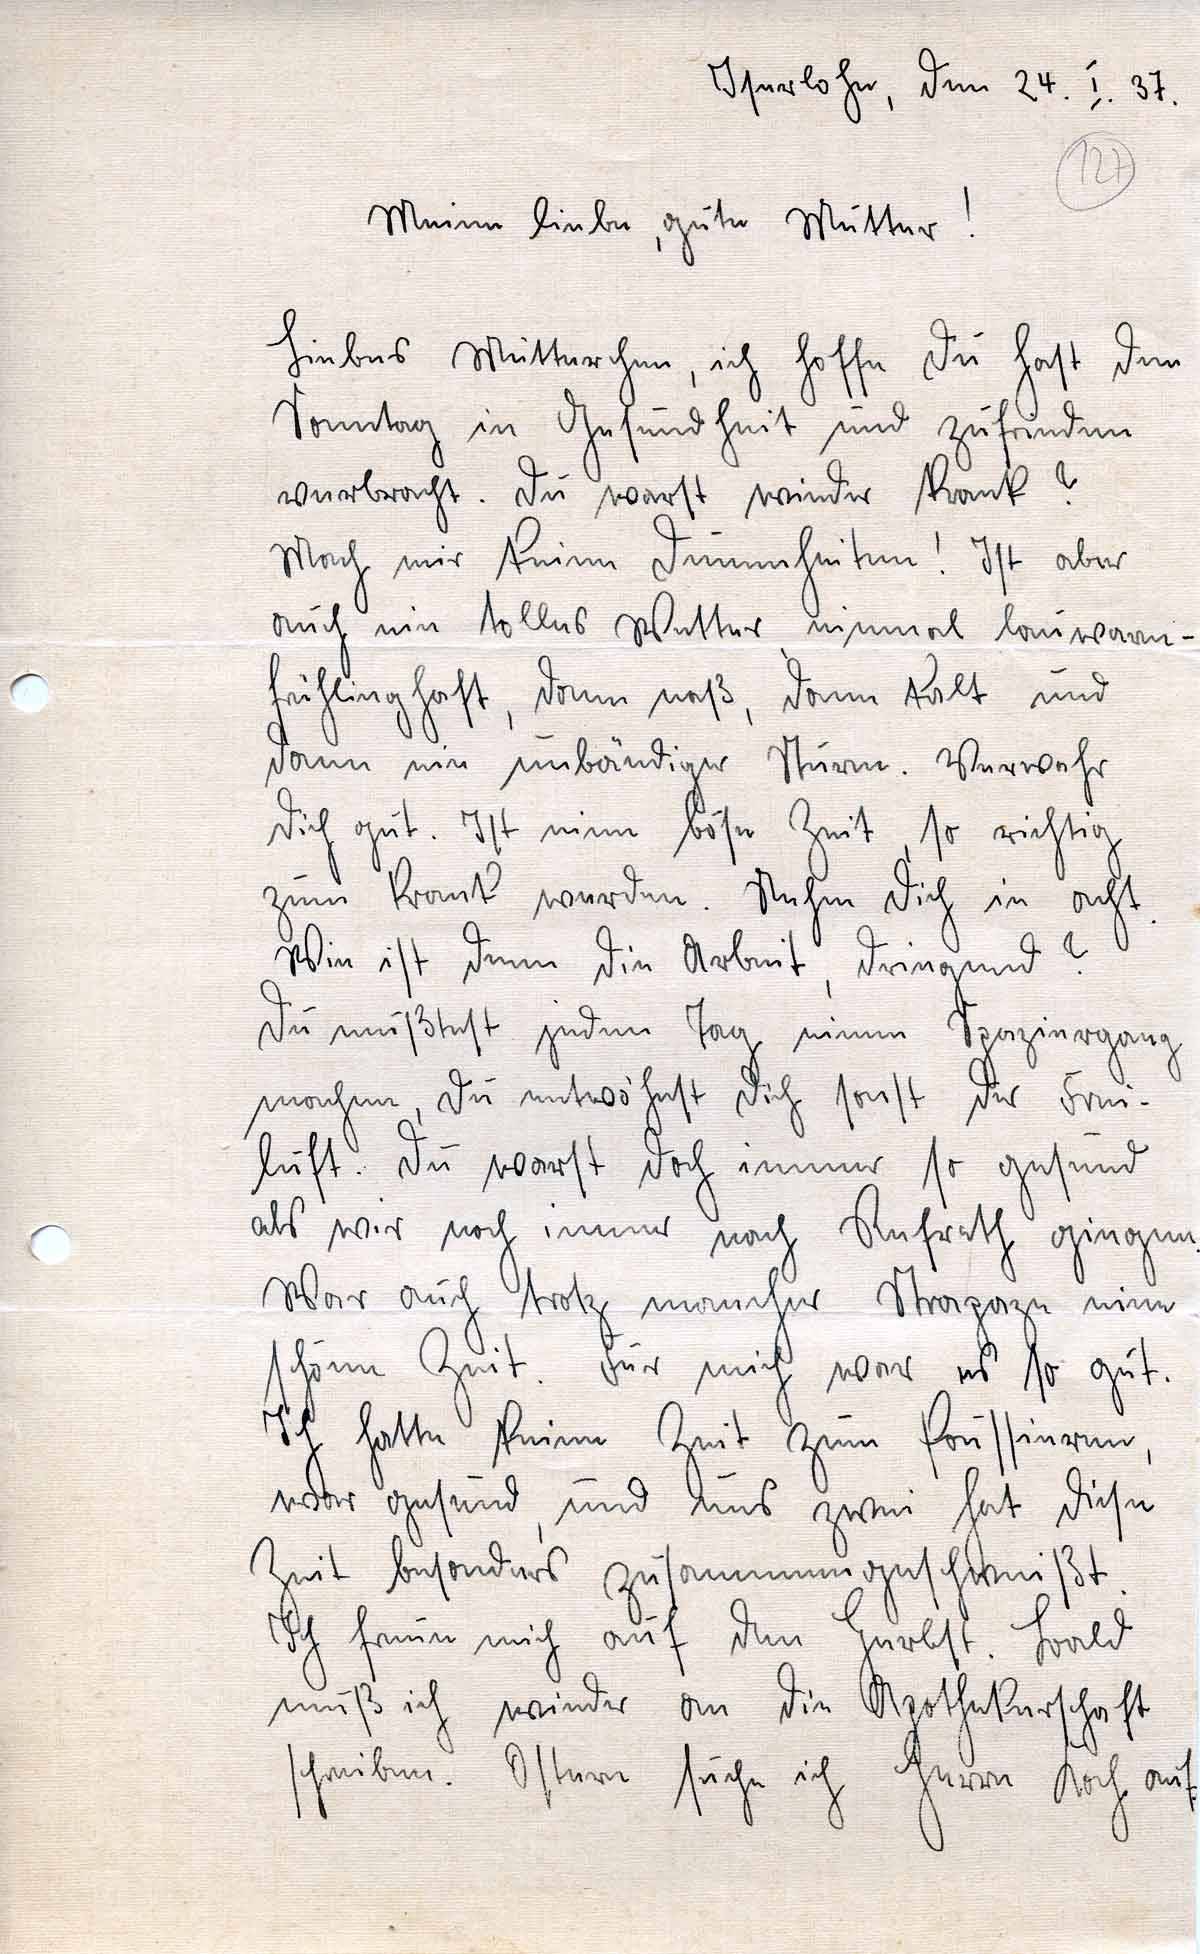 Iserlohn, den 24. I. 37.
127
Meine liebe, gute Mutter!
Liebes Mutterchen, ich hoffe Du hast den
Sonntag in Gesundheit und zufrieden
verbracht. Du warst wieder krank?
Mach mir keine Dummheiten! Ist aber
auch ein tolles Wetter, einmal lauwarm-
frühlinghaft, dann naß, dann kalt und
dann ein unbändiger Sturm. Verwahr
Dich gut. Ist eine böse Zeit, so richtig
zum krank werden. Nehm Dich in acht.
Wie ist denn die Arbeit, dringend?
Du mußtest jeden Tag einen Spaziergang
machen, Du entwöhnst Dich sonst der Frei-
luft. Du warst doch immer so gesund
als wir noch immer nach Refrath gingen.
War auch trotz mancher Strapaze eine
schöne Zeit. Für mich war es so gut.
Ich hatte keine Zeit zum Poussieren,
war gesund, und uns zwei hat diese
Zeit besonders zusammengeschweißt.
Ich freue mich auf den Herbst. Bald
muß ich wieder an die Apothekerschaft
schreiben. Ostern suche ich Herrn Koch auf.